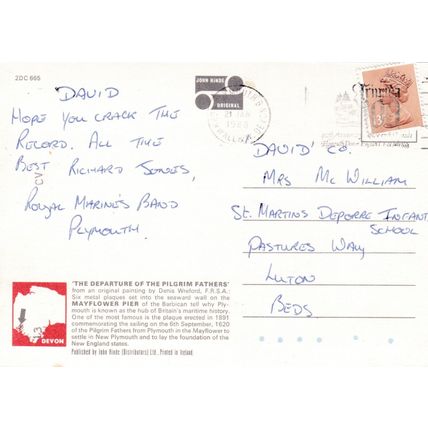 2DC 665
DAVID
HOPE YOU CRACK THE
RECORD. ALL THE
BEST RICHARD JONES,
ROYAL MARINES BAND
PLYMOUTH.
JOHN HINDE
ORIGINAL
21 JAN
1988
DAVID C/O.
MRS MC WILLIAM
ST. MARTINS DEPORRE INFANT
SCHOOL
PASTURES WAY
LUTON
BEDS
'THE DEPARTURE OF THE PILGRIM FATHERS'
from an original painting by Denis Wreford, F.R.S.A.
Six metal plaques set into the seaward wall on the
MAYFLOWER PIER of the Barbican tell why Ply-
mouth is known as the hub of Britain's maritime history.
One of the most famous is the plaque erected in 1891
commemorating the sailing on the 6th September, 1620
of the Pilgrim Fathers from Plymouth in the Mayflower to
settle in New Plymouth and to lay the foundation of the
New England states.
Published by John Hinde (Distributors) Ltd., Printed in Ireland
DEVON